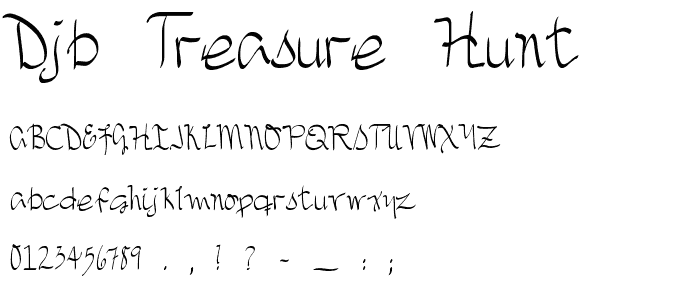 Djb Treasure Hunt
ABCDEFGHIJKLMNOPQRSTUVWXYZ
abcdefghijklmnopqrstuvwxyz
0123456789 . , ! ? - _ : ;